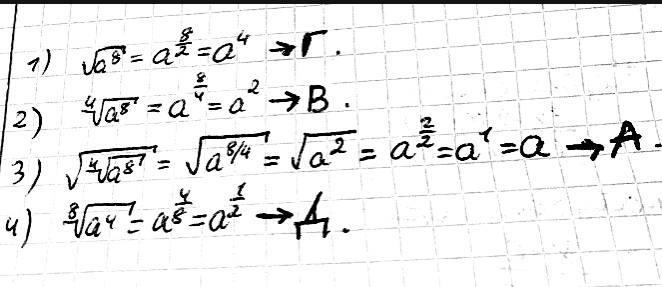 1) √a⁸ = a^(8/2) = a⁴ → Г.
2) ⁴√a⁸ = a^(8/4) = a² → В.
3) √(⁴√a⁸) = √(a^(8/4)) = √a² = a^(2/2) = a¹ = a → А.
4) ⁸√a⁴ = a^(4/8) = a^(1/2) → Д.